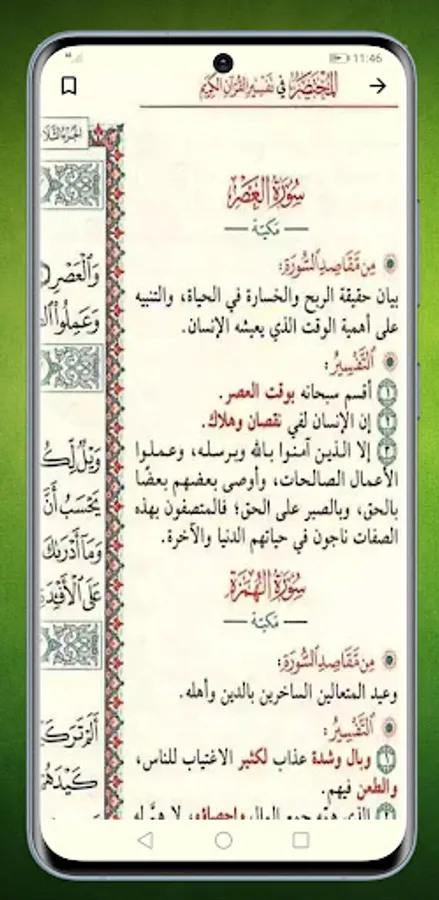 11:46
المختصر في تفسير القرآن الكريم
سورة العصر
مكية
من مقاصد السورة:
بيان حقيقة الربح والخسارة في الحياة، والتنبيه
على أهمية الوقت الذي يعيشه الإنسان.
التفسير:
١ أقسم سبحانه بوقت العصر.
٢ إن الإنسان لفي نقصان وهلاك.
٣ إلا الذين آمنوا بالله وبرسله، وعملوا
الأعمال الصالحات، وأوصى بعضهم بعضًا
بالحق، وبالصبر على الحق؛ فالمتصفون بهذه
الصفات ناجون في حياتهم الدنيا والآخرة.
سورة الهمزة
مكية
من مقاصد السورة:
وعيد المتعالين الساخرين بالدين وأهله.
التفسير:
١ وبال وشدة عذاب لكثير الاغتياب للناس،
والطعن فيهم.
٢ الذي همّه جمع المال وإحصاؤه، لا همَّ له
وَٱلْعَصْرِ
وَعَمِلُوا۟
وَيْلٌ لِّكُ
يَحْسَبُ أَنَّ
وَمَآ أَدْرَىٰكَ
عَلَى ٱلْأَفْـِٔدَ
أَلَمْ تَرَ كَيْ
كَيْدَهُمْ